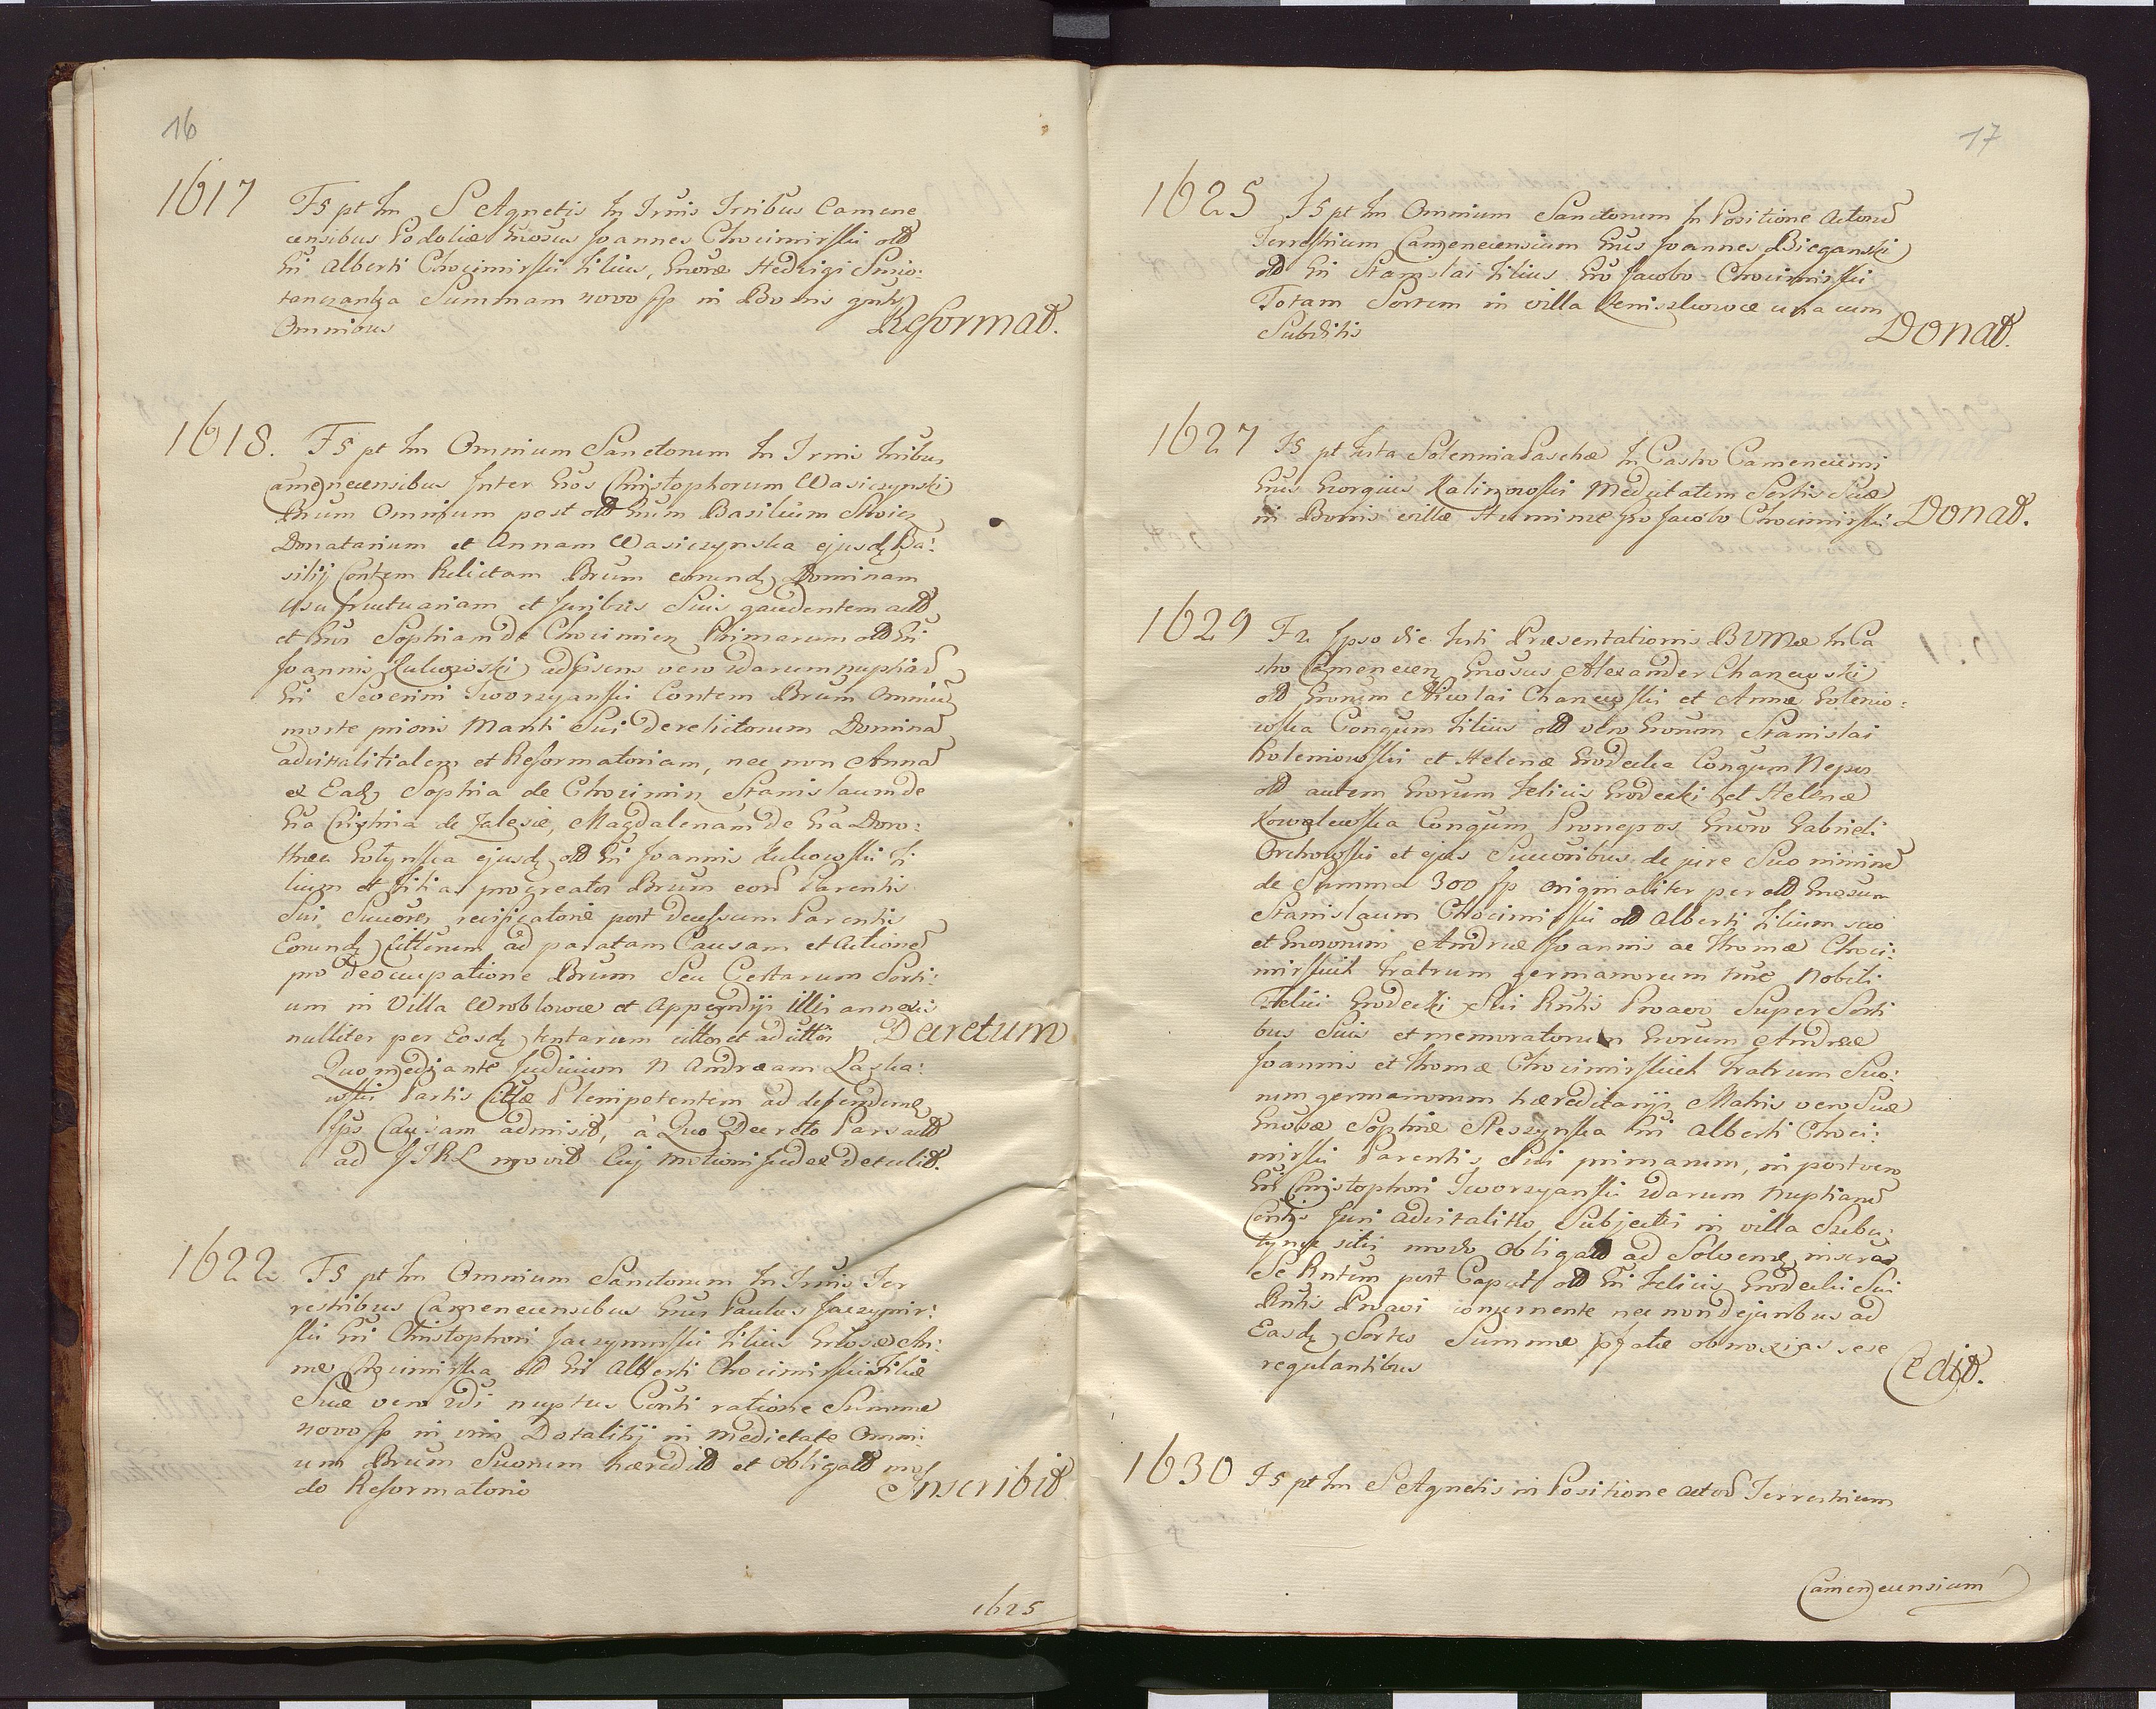 16
1617 F5 pt Fm S Agnetis In Trnis Trribus Camene
censibus Podoliæ Gnosus Joannes Chocimirski olĩ
Gñi Alberti Chocimirskii Filius, Gnosæ Hedvigi Smio:
tanczanka Summam 4000 fp in Bonis gnlr
Omnibus Reformat.
1618. F5 pt Fm Omnium Sanctorum In Trnis Trribus
Camenecensibus Inter Gnos Christophorum Wasiczynski
Bnrum Omnium post olĩ Gnum Basilium
Donatarium et Annam Wasiczynska ejusdq Ba:
silij Contem Relictam Bnrum eorundq Dominam
Usufructuariam et Juribus Suis gaudentem actt
et Gnm Sophiam de Chocimierz Primarum olĩ Gñi
Joannis Kukowski adpsens vero 2darum nuptiarũ
Gñi Severini Tworzyanski Contem Bnrum Omniũ
morte prioris Mariti Sui derelictorum Dominã
advitalitialem et Reformatoriam, nec non Annã
ex Eadq Sophia de Chocimirz Stanislaum de
Gna Christina de Zalesie, Magdalenam de Gna Doro:
thea Golynska ejusdq olĩ Gñi Joannis Kukowskii Fi
lium et Filias procreatos Bnrum eorũ Parentis
Sui Succores recijicatorie post decessum Parentis
Eorundq Cittorum ad paratam Causam et Actionẽ
pro deoccupatione Bnrum Seu Certarum Sorti:
um in Villa Wroblowce et Appendijs illi annexis
nulliter per Eosdq tentarum citto et adcitto Decretum
Quo mediante Judicium N Andream Laska:
wski Partis Cittæ Plenipotentem ad defendenã
Ips Causam admisit, à Quo Decreto Pars actt
ad JTRL movit Cuj motioni Judex Detulit.
1622. F5 pt Fm Omnium Sanctorum In Trnis Ter
restribus Camenecensibus Gnus Paulus Jaczymir:
ski Gñi Christophori Jaczymirskii Filius Gnosæ An:
næ Chocimirska olĩ Gñi Alberti Chocimirskii Filiæ
Suæ vero 2di nuptus Conti ratione Summæ
4000 fp in vim Dotalitij in medietate Omni:
um Bnrum Suorum hæredit et Obligatt mo
do Reformatorio Inscribit
1625
17
1625 F5 pt Fm Omnium Sanctorum In Positione Actorũ
Terrestrium Camenecensium Gnus Joannes Bieganski
olĩ Gñi Stanislai Filius Gno Jacobo Chocimirskii
Totam Sortem in villa Deniszkowce una cum
Subditis Donat.
1627 F5 pt Festa Solennia Paschæ In Castro Camenecensi
Gnus Georgius Kalinowski Medietatem Sortis Suæ
in Bonis villæ Humince Gno Jacobo Chocimirski Donat.
1629 F2 Ipso die Festi Præsentationis BVMæ In Ca
stro Camenecen Gnosus Alexander Chanewski
olĩ Gnorum Nicolai Chanewskii et Annæ Golenio:
wska Congum Filius olĩ vero Gnorum Stanislai
Goleniowskii et Helenæ Grodecka Congum Nepos
olĩ autem Gnorum Felicis Grodecki et Helenæ
Kowalewska Congum Pronepos Gnoso Gabrieli
Orchowski et ejus Succoribus de jure Suo niminẽ
de Summa 300 fp originaliter per olĩ Gnosum
Stanislaum Chocimirskii olĩ Alberti Filium suo
et Gnosorum Andreæ Joannis ac Thomæ Choci:
mirskich Fratrum germanorum nne Nobili
Felici Grodecki Sui Rntis Proavo Super Sorti
bus Suis et memoratorum Gnorum Andreæ
Joannis et Thomæ Chocimirskich Fratrum Suo:
rum germanorum hæreditarijs Matris vero Suæ
Gnosæ Sophiæ Steszynska Gñi Alberti Choci:
mirskii Parentis Sui primarum, in post vero
Gñi Christophori Tworzyanski 2darum Nuptiarũ
Contis Juri Advitalitio Subjectis in villa Szebu:
tynce sitis modo Obligatt ad Solvenã inscra
Se Rntem post Caput olĩ Gñi Felicis Grodeckii Sui
Rntis Proavi concernente nec non de juribus ad
Easdq Sortes Summæ pfatæ obnoxias sese
regulantibus Cedit.
1630 F5 pt Fm S Agnetis in Positione Actorũ Terrestrium
Camenecensium